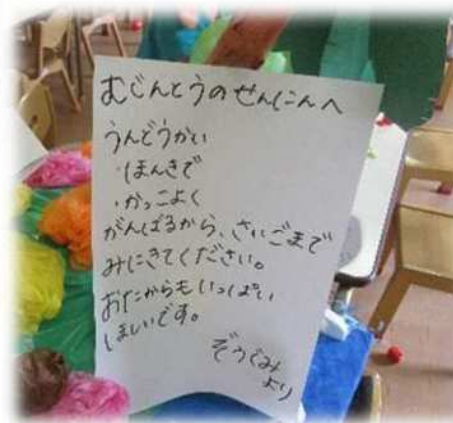 むじんとうのせんにんへ
うんどうかい
・ほんきで
・かっこよく
がんばるから、さいごまで
みにきてください。
おたからもいっぱい
ほしいです。
ぞうぐみ
より